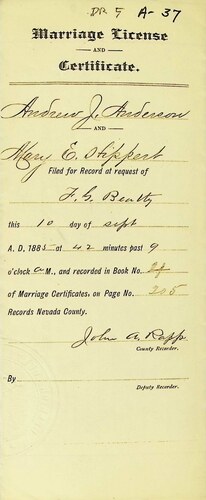 DR 5 A-37
Marriage License
AND
Certificate.
Andrew J. Anderson
AND
Mary E. Hippert
Filed for Record at request of
F. G. Beatty
this 10 day of Sept
A. D. 1885 at 42 minutes past 9
o'clock A M., and recorded in Book No.
of Marriage Certificates, on Page No. 205
Records Nevada County.
John A. Rapp
County Recorder.
By
Deputy Recorder.